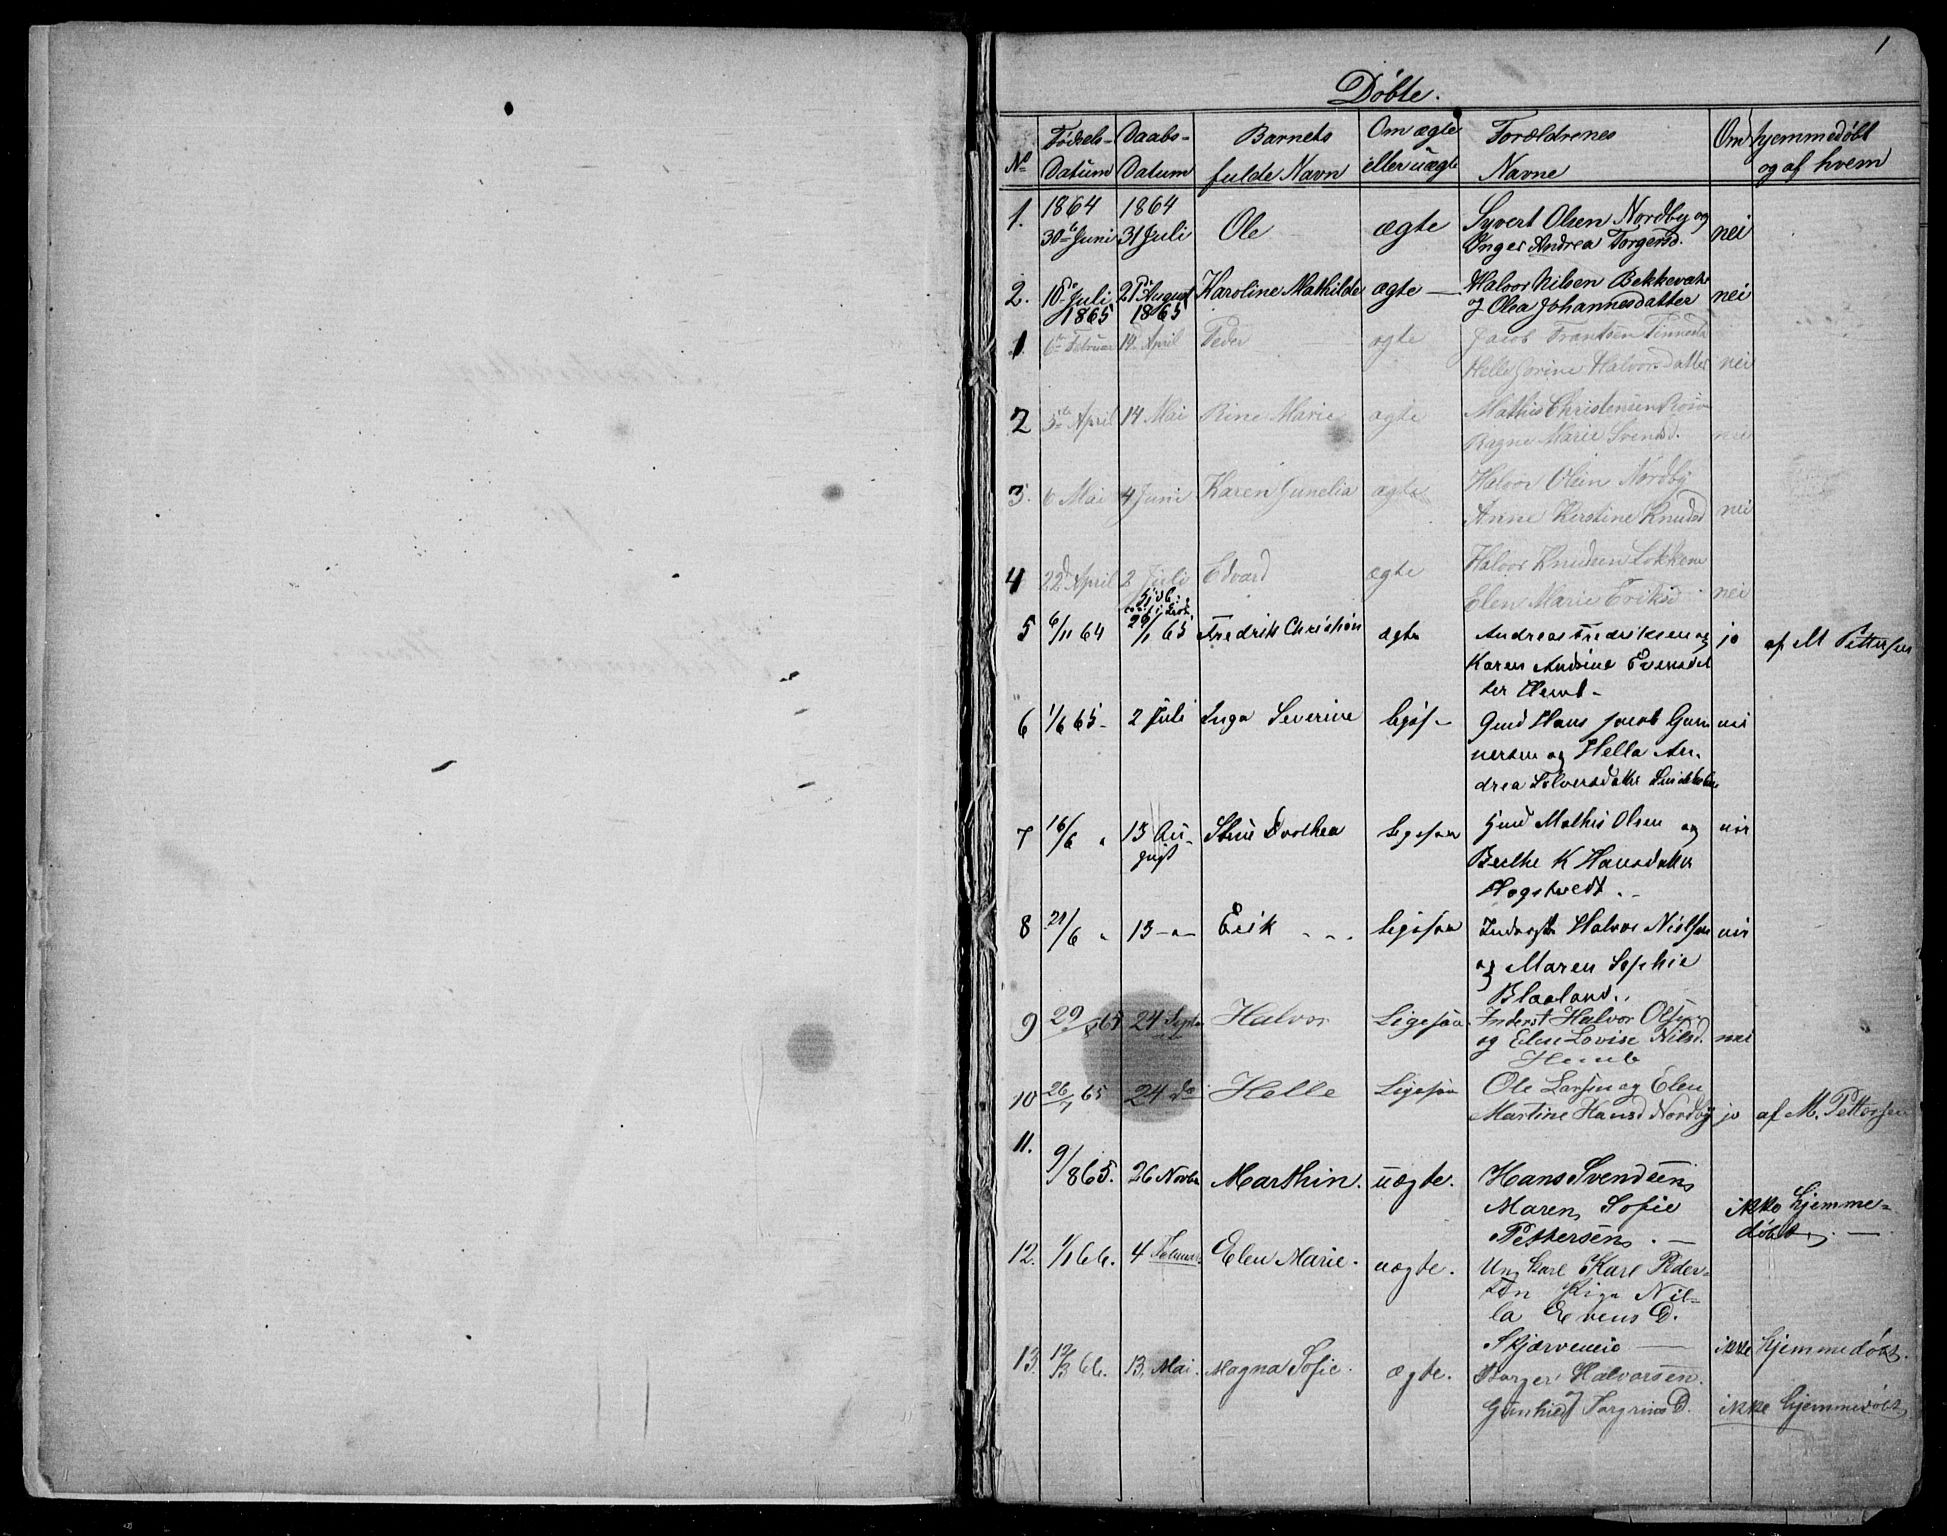 1
Døbte.
No Fødsels-Datum Daabs-Datum Barnets fulde Navn Om ægte eller uægte Forældrenes Navne Om hjemmedøbt og af hvem
1. 1864 30te Juni 1864 31 Juli Ole ægte Syvert Olsen Nordby og nei
Inger Andrea Torgersd.
2. 10de Juli 21 August Karoline Mathilde ægte Halvor Nilsen
og Olea Johannesdatter nei
1865 1865
1. 6te Februar April Peder ægte Jacob Frantsen
Helle Jorine Halvorsdatter nei
2 5te April 14 Mai Rine Marie ægte Mathis Christensen
Ragne Marie Svendsd. nei
3. 6 Mai 4 Juni Karen Junelia ægte Halvor Olsen Nordby
Anne Kirstine Knudsd nei
4 22d April 2 Juli Edvard ægte Halvor Knudsen
Elen Marie Eriksd. nei
5 6/11 64 26/1 65 Fredrik Christian ægte Andreas Fredriksen og jo af M Pettersen
Karen Andrine Evensdat
ter Hemb-
6 1/6 65- 2 Juli Inga Severine liges- Gmd Hans Jacob Gun nei
nersen og Hella An-
drea Sølversdatter
7 16/6 " 13 Au- Stine Dorthea Ligesaa Gmd Mathis Olsen og nei
gust Berthe K Hansdatter
Hogstvedt.-
8 21/6 " 13-"- Erik - - - Ligesaa Inderst Halvor Nielsen nei
og Maren Sophie
Blaaland.
9 29/8 65 24 Septe Halvor Ligesaa Inderst Halvor Olsen
og Elen Lovise Nilsd. nei
Hemb
10 26/7 65 24 do Helle Ligesaa Ole Larsen og Elen
Martine Hansd Nordby jo af M. Pettersen
11. 9/8 65. 26 Novbr Marthin. uægte. Hans Svendsen
Maren Sofie ikke hjemme=
Pettersen. — døbt. —
12. 1/1 66. 4 Februar. Elen Marie. uægte. Ungkarl Karl Peder-
sen Piga Nil-
la Evens D.
Skjærveneie — ikke hjemmedøbt.
13. 12/3 66. 13. Mai. Magna Sofie. ægte. Borger Halvorsen.
og Gunhild Torgrims D. ikke hjemmedøbt